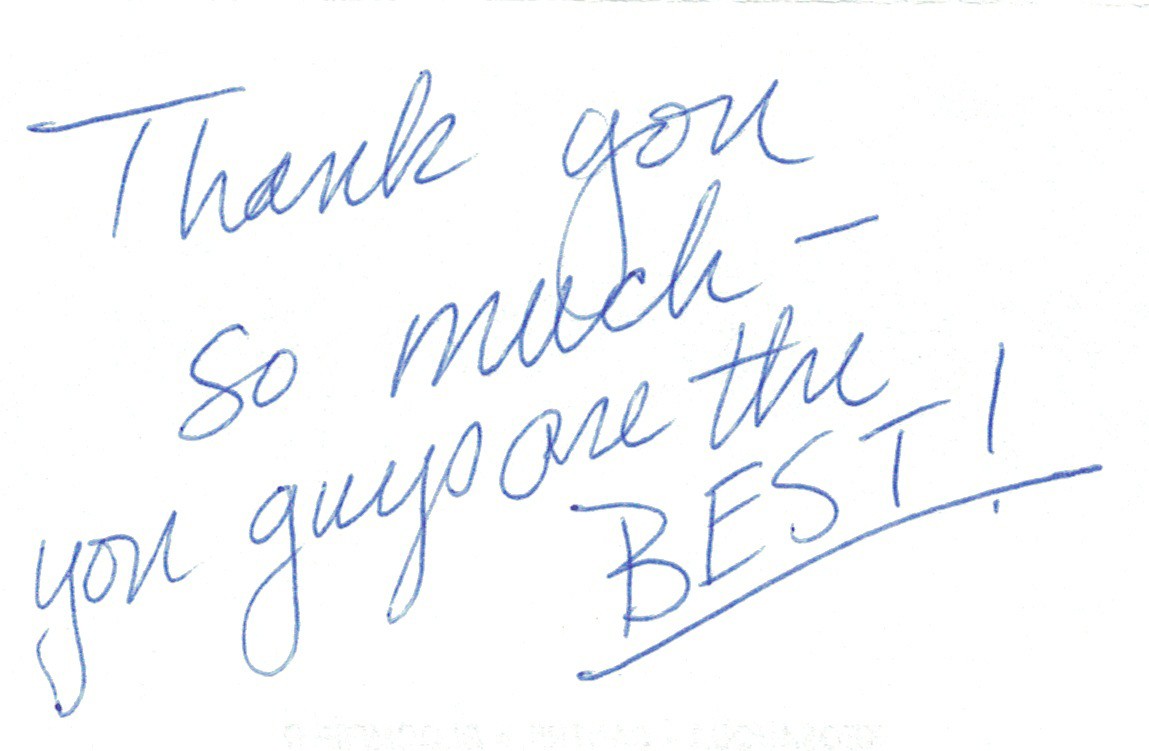 Thank you
so much –
you guys are the
BEST!